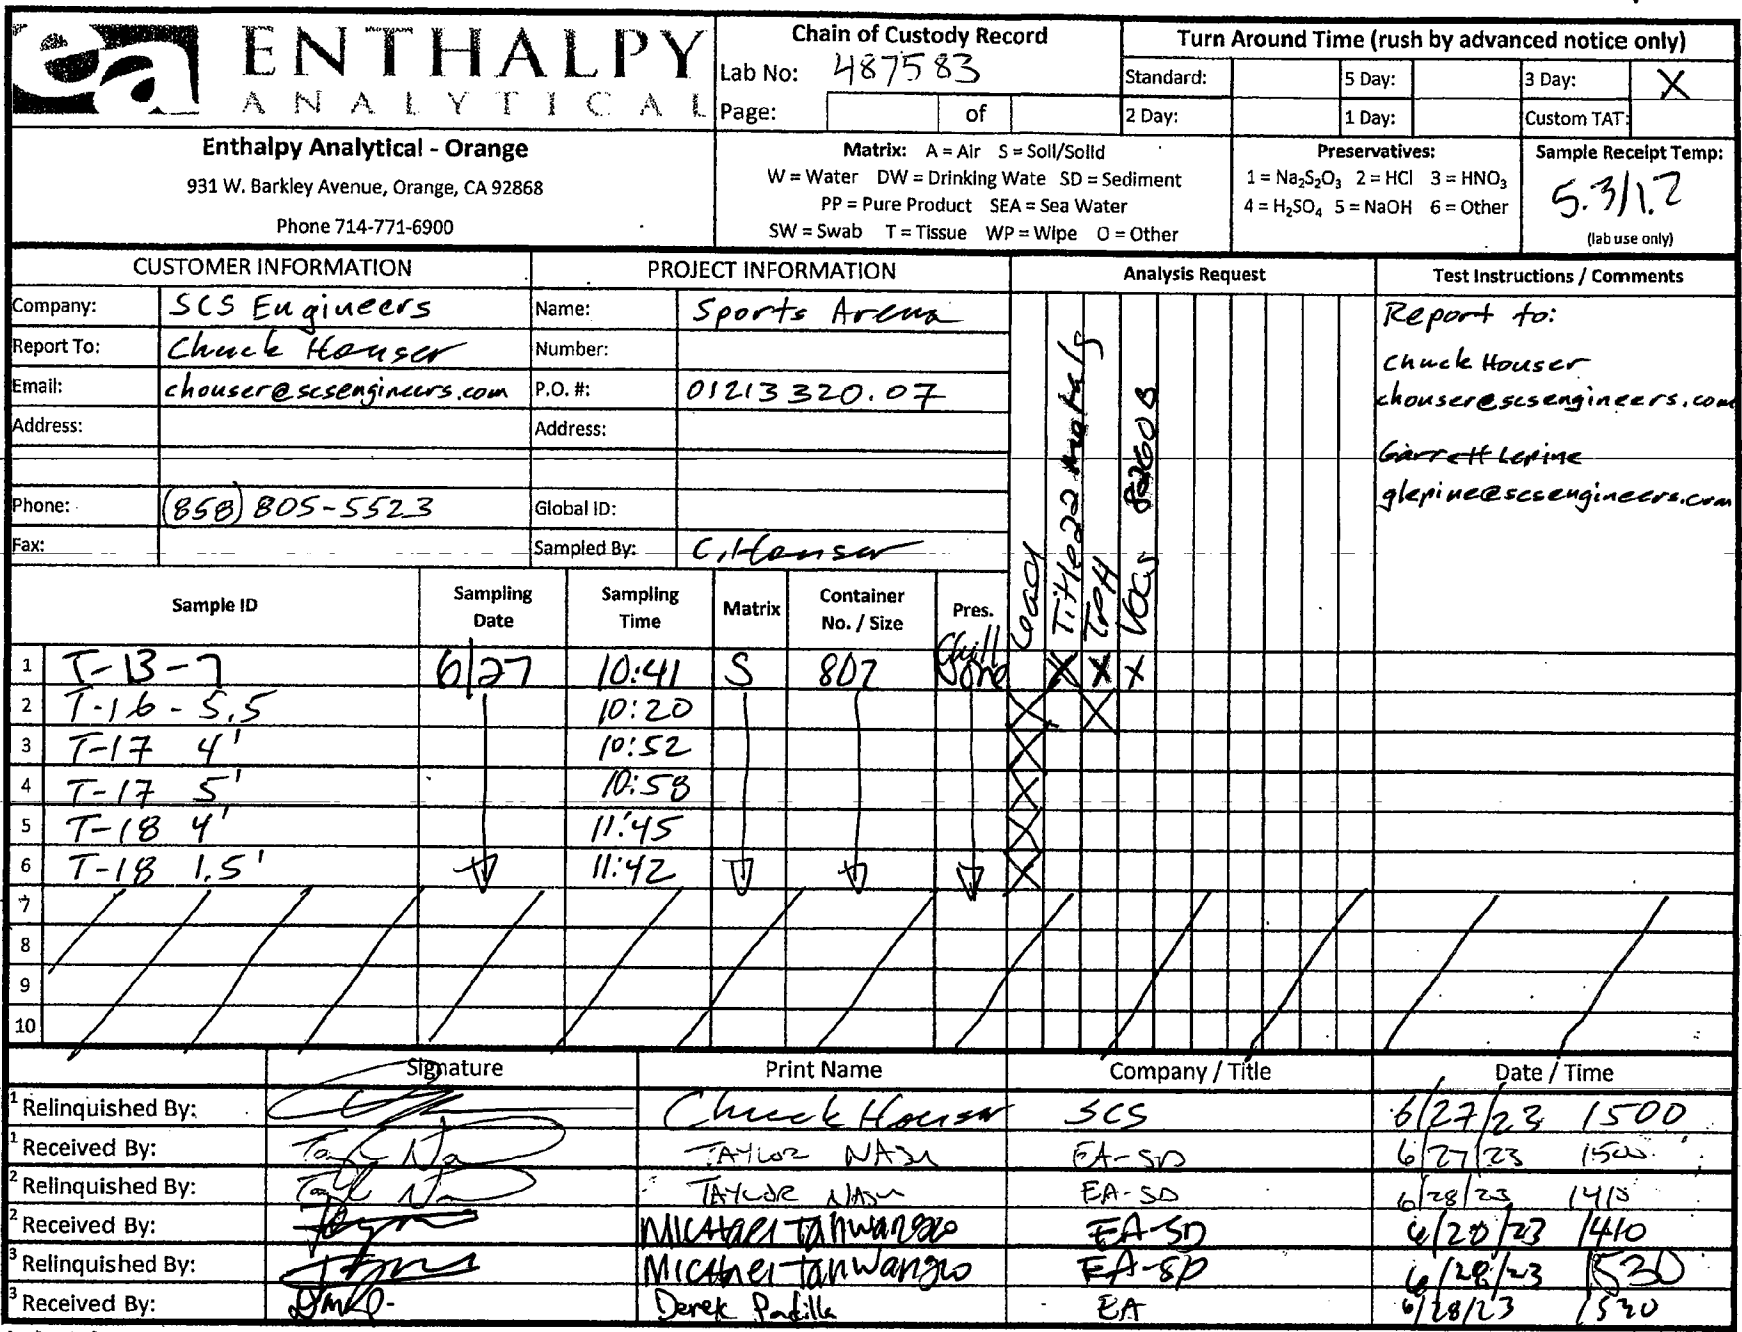 ea ENTHALPY
ANALYTICAL
Chain of Custody Record
Lab No: 487583
Page: of
Turn Around Time (rush by advanced notice only)
Standard: 5 Day: 3 Day: X
2 Day: 1 Day: Custom TAT:
Enthalpy Analytical - Orange
931 W. Barkley Avenue, Orange, CA 92868
Phone 714-771-6900
Matrix: A = Air S = Soil/Solid
W = Water DW = Drinking Wate SD = Sediment
PP = Pure Product SEA = Sea Water
SW = Swab T = Tissue WP = Wipe O = Other
Preservatives:
1 = Na₂S₂O₃ 2 = HCl 3 = HNO₃
4 = H₂SO₄ 5 = NaOH 6 = Other
Sample Receipt Temp:
5.3/1.2
(lab use only)
CUSTOMER INFORMATION PROJECT INFORMATION Analysis Request Test Instructions / Comments
Company: SCS Engineers Name: Sports Arena
Report To: Chuck Houser Number:
Email: chouser@scsengineers.com P.O. #: 01213320.07
Address: Address:
Phone: (858) 805-5523 Global ID:
Fax: Sampled By: C. Houser
Lead
Title 22 metals
TPH
VOCs 8260B
Report to:
Chuck Houser
chouser@scsengineers.com
Garrett Lepine
glepine@scsengineers.com
Sample ID Sampling Date Sampling Time Matrix Container No. / Size Pres.
1 T-13-7 6/27 10:41 S 8oz Chill X X X
2 T-16-5.5 10:20 X X
3 T-17 4' 10:52 X
4 T-17 5' 10:58 X
5 T-18 4' 11:45 X
6 T-18 1.5' 11:42 X
7
8
9
10
Signature Print Name Company / Title Date / Time
1 Relinquished By: Chuck Houser SCS 6/27/23 1500
1 Received By: TAYLOR NASH EA-SD 6/27/23 1500
2 Relinquished By: TAYLOR NASH EA-SD 6/28/23 1410
2 Received By: Michael Tanwangco EA-SD 6/28/23 1410
3 Relinquished By: Michael Tanwangco EA-SD 6/28/23 1530
3 Received By: Derek Padilla EA 6/28/23 1530